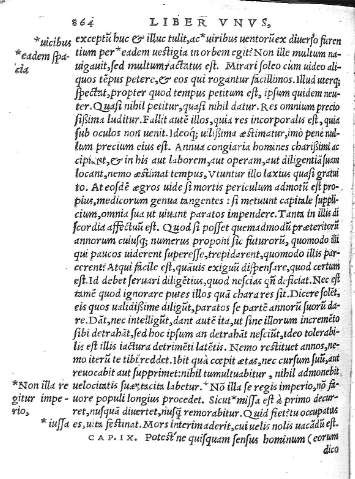 864 LIBER VNVS,
*uicibus
*eadem spa
cia
exceptũ huc & illuc tulit, ac *uiribus uentorũ ex diuerso furen
tium per *eadem uestigia in orbem egit? Non ille multum na-
uigauit, sed multum iactatus est. Mirari soleo cùm uideo ali-
quos tẽpus petere, & eos qui rogantur facillimos. Illud uterq;
spectat, propter quod tempus petitum est, ipsum quidem neu-
ter. Quasi nihil petitur, quasi nihil datur. Res omnium precio
sissima luditur. Fallit autẽ illos, quia res incorporalis est, quia
sub oculos non uenit. Ideoq; uilissima æstimatur, imò penè nul-
lum precium eius est. Annua congiaria homines charissimi ac
cipiunt, & in his aut laborem, aut operam, aut diligentiã suam
locant, nemo æstimat tempus, Vtuntur illo laxius quasi gratui
to. At eosdẽ ægros uide si mortis periculum admotũ est pro-
pius, medicorum genua tangentes: si metuunt capitale suppli-
cium, omnia sua ut uiuant paratos impendere. Tanta in illis di
scordia affectuũ est. Quod si posset quemadmodũ præteritorũ
annorum cuiusq; numerus proponi sic futurorũ, quomodo illi
qui paucos uiderent superesse, trepidarent, quomodo illis par-
cerent: Atqui facile est, quãuis exiguũ dispensare, quod certum
est. Id debet seruari diligẽtius, quod nescias qñ deficiat. Nec est
tamẽ quod ignorare putes illos quã chara res sit. Dicere solẽt,
eis quos ualidissime diligũt, paratos se partẽ annorũ suorũ da-
re. Dãt, nec intelligũt, dant autẽ ita, ut sine illorum incremẽto
sibi detrahãt, sed hoc ipsum an detrahãt nesciũt, ideo tolerabi-
lis est illis iactura detrimẽti latẽtis. Nemo restituet annos, ne-
mo iterũ te tibi reddet. Ibit quà cœpit ætas, nec cursum suũ, aut
reuocabit aut supprimet: nihil tumultuabitur, nihil admonebit
*Non illa re
gitur impe-
rio,
uelocitatis suæ, tacita labetur. *Nõ illa se regis imperio, nõ fa-
uore populi longius procedet. Sicut *missa est à primo decur-
ret, nusquã diuertet, nusq̃ remorabitur. Quid fiet? tu occupatus
*iussa
es, uita festinat. Mors interim aderit, cui uelis nolis uacãdũ est.
CAP. IX. Potestne quisquam sensus hominum (eorum
dico